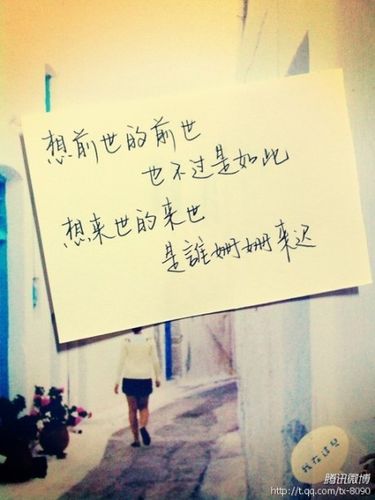 想前世的前世
也不过是如此
想来世的来世
是誰姗姗来迟
我在這兒
腾讯微博
http://t.qq.com/tx-8090